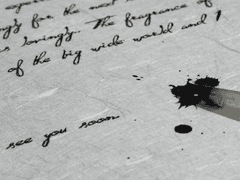 for the next
lovingly. The fragrance of
of the big wide world and I
see you soon